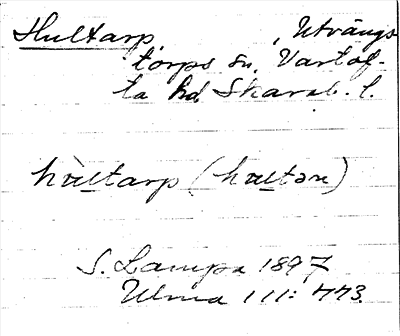 Hultarp, Utvängs
torps sn, Vartof-
ta hd Skarab. l.
hùltarp (hultən)
S. Lampa 1897
Ulma 111:443.